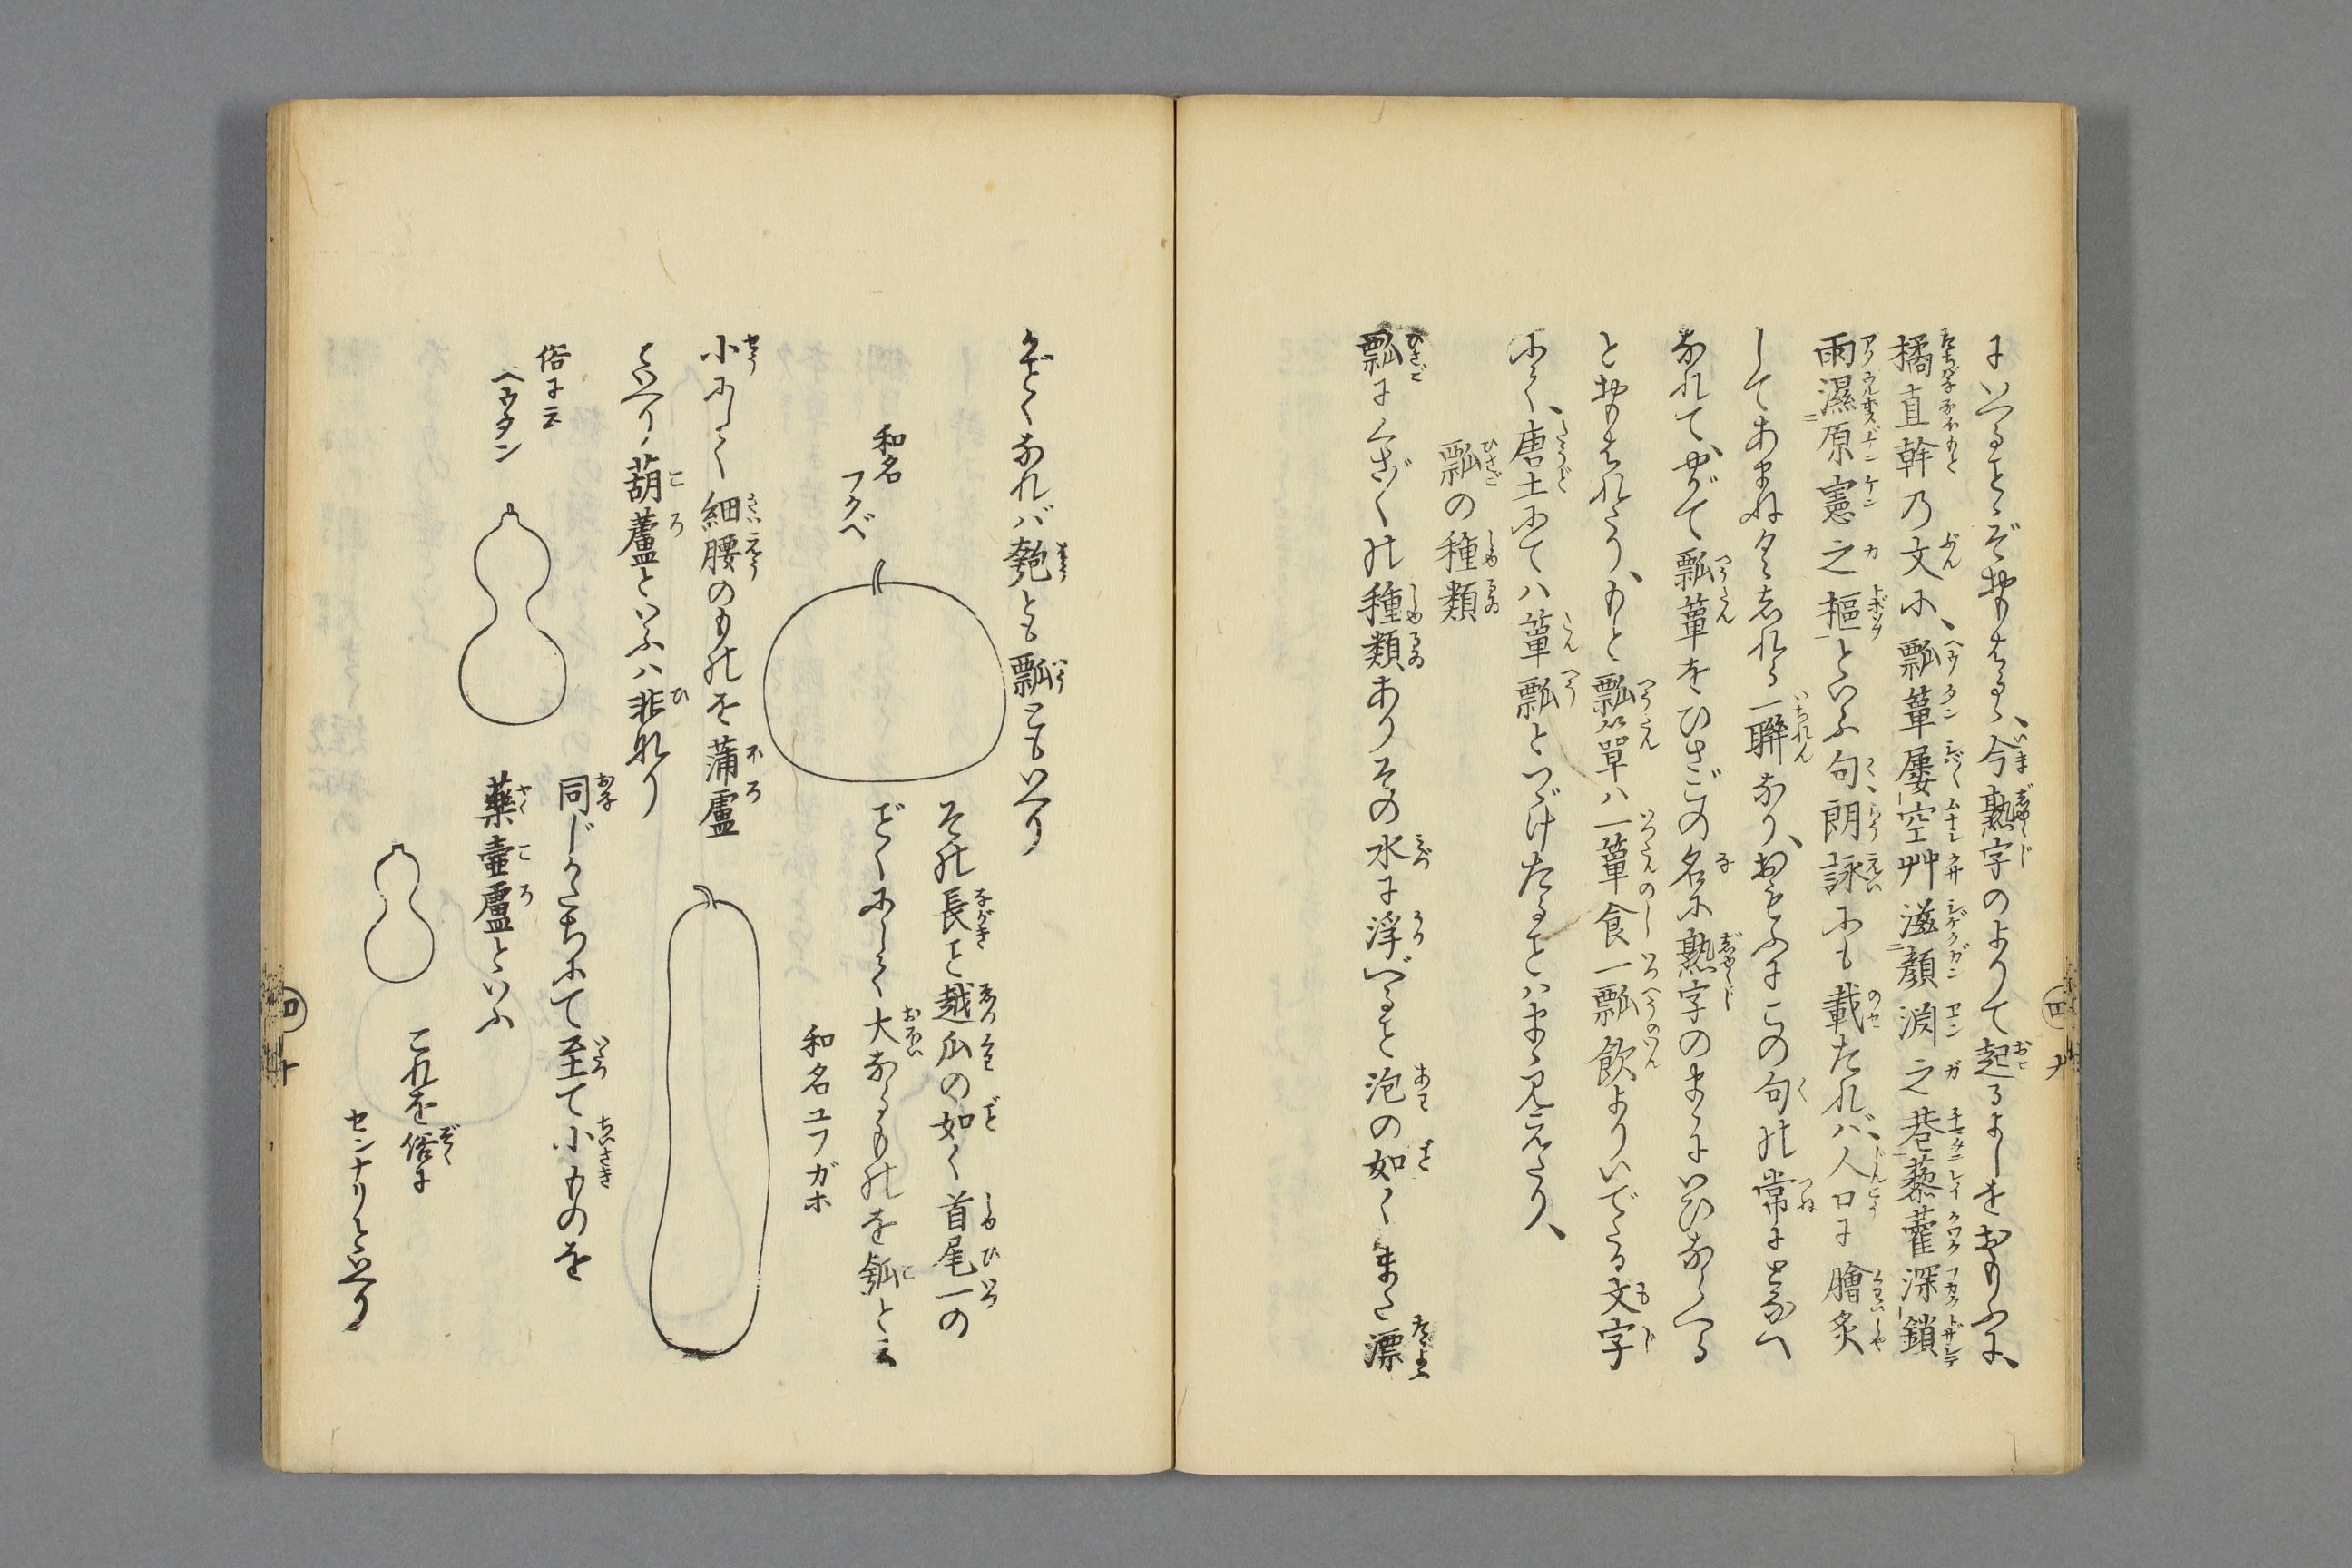 にいへることぞおもはるゝ、今熟字のよりて起るよしをおもふに、
橘直幹乃文に、瓢簞屢空艸滋顔淵之巷藜藿深鎖
雨濕原憲之樞といふ句、朗詠にも載たれバ、人口に膾炙
してあまねく志れる一聯なり、おもふにこの句の常にとなへ
なれて、やがて瓢簞をひさごの名に熟字のまゝにいひならへる
とおもはれたり、もと瓢簞ハ一簞食一瓢飲よりいでたる文字
にて、唐土にてハ簞瓢とつゞけたることハまゝ見えたり、
瓢の種類
瓢にくさ〴〵の種類ありその水に浮べること泡の如くまた漂
ごとくなれバ匏とも瓢ともいへり
和名
フクベ
その長こと越瓜の如く首尾一の
ごとくにして大なるものを瓠と云
和名ユフガホ
小にして細腰のものを蒲盧
といへり、葫蘆といふハ非なり
俗に云
ヘウタン
同じかたちにて至て小ものを
藥壷盧といふ
これを俗に
センナリといへり
四ノ十